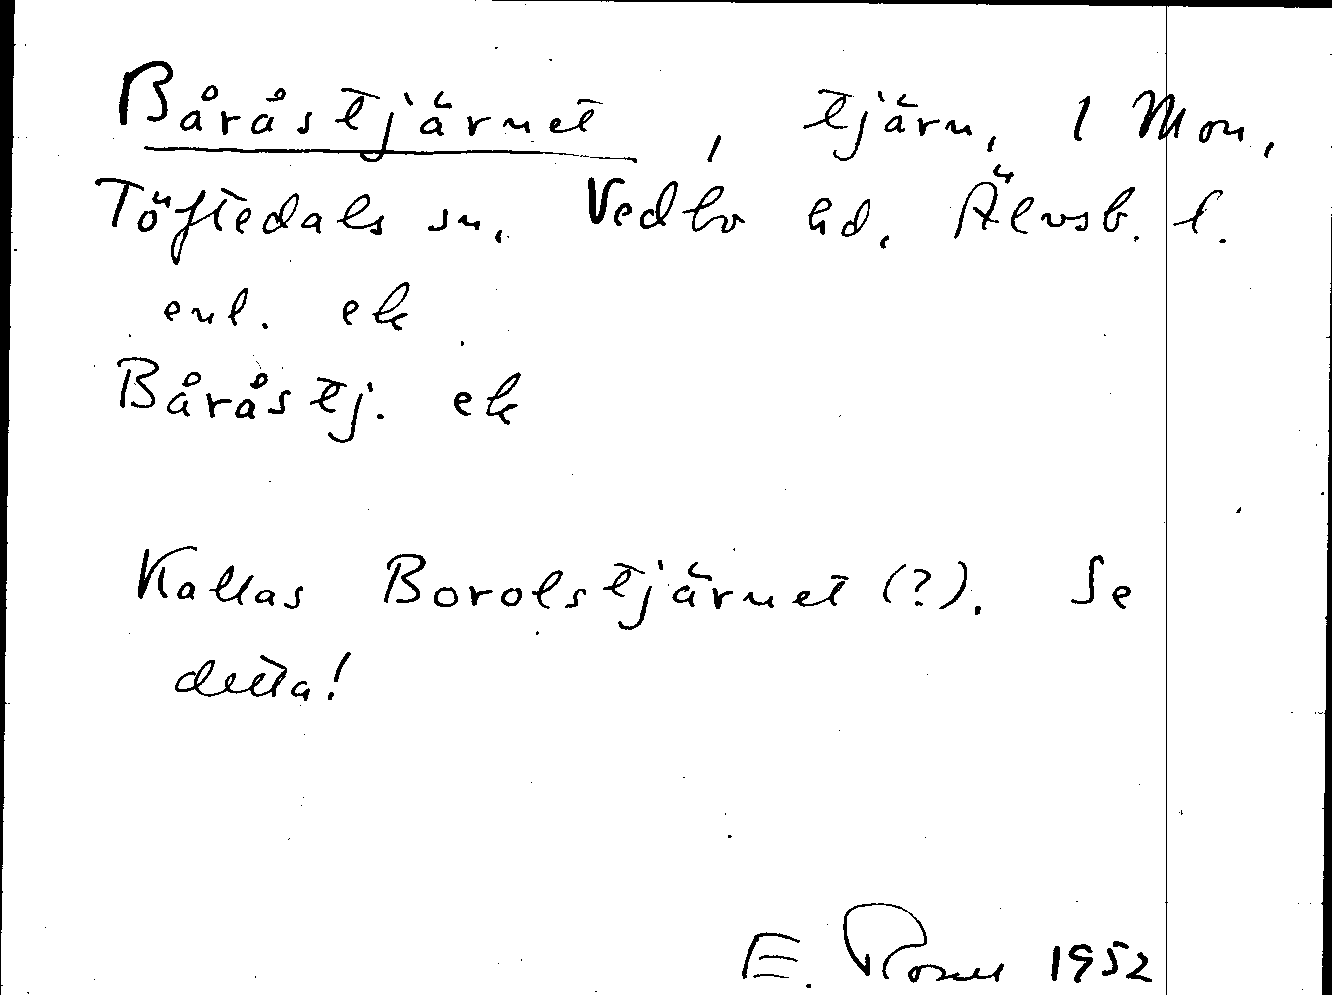 Båråstjärnet, tjärn, 1 Mon,
Töftedals sn, Vedbo hd, Älvsb. l.
enl. ek
Båråstj. ek
Kallas Borolstjärnet (?). Se
detta!
E. 1952